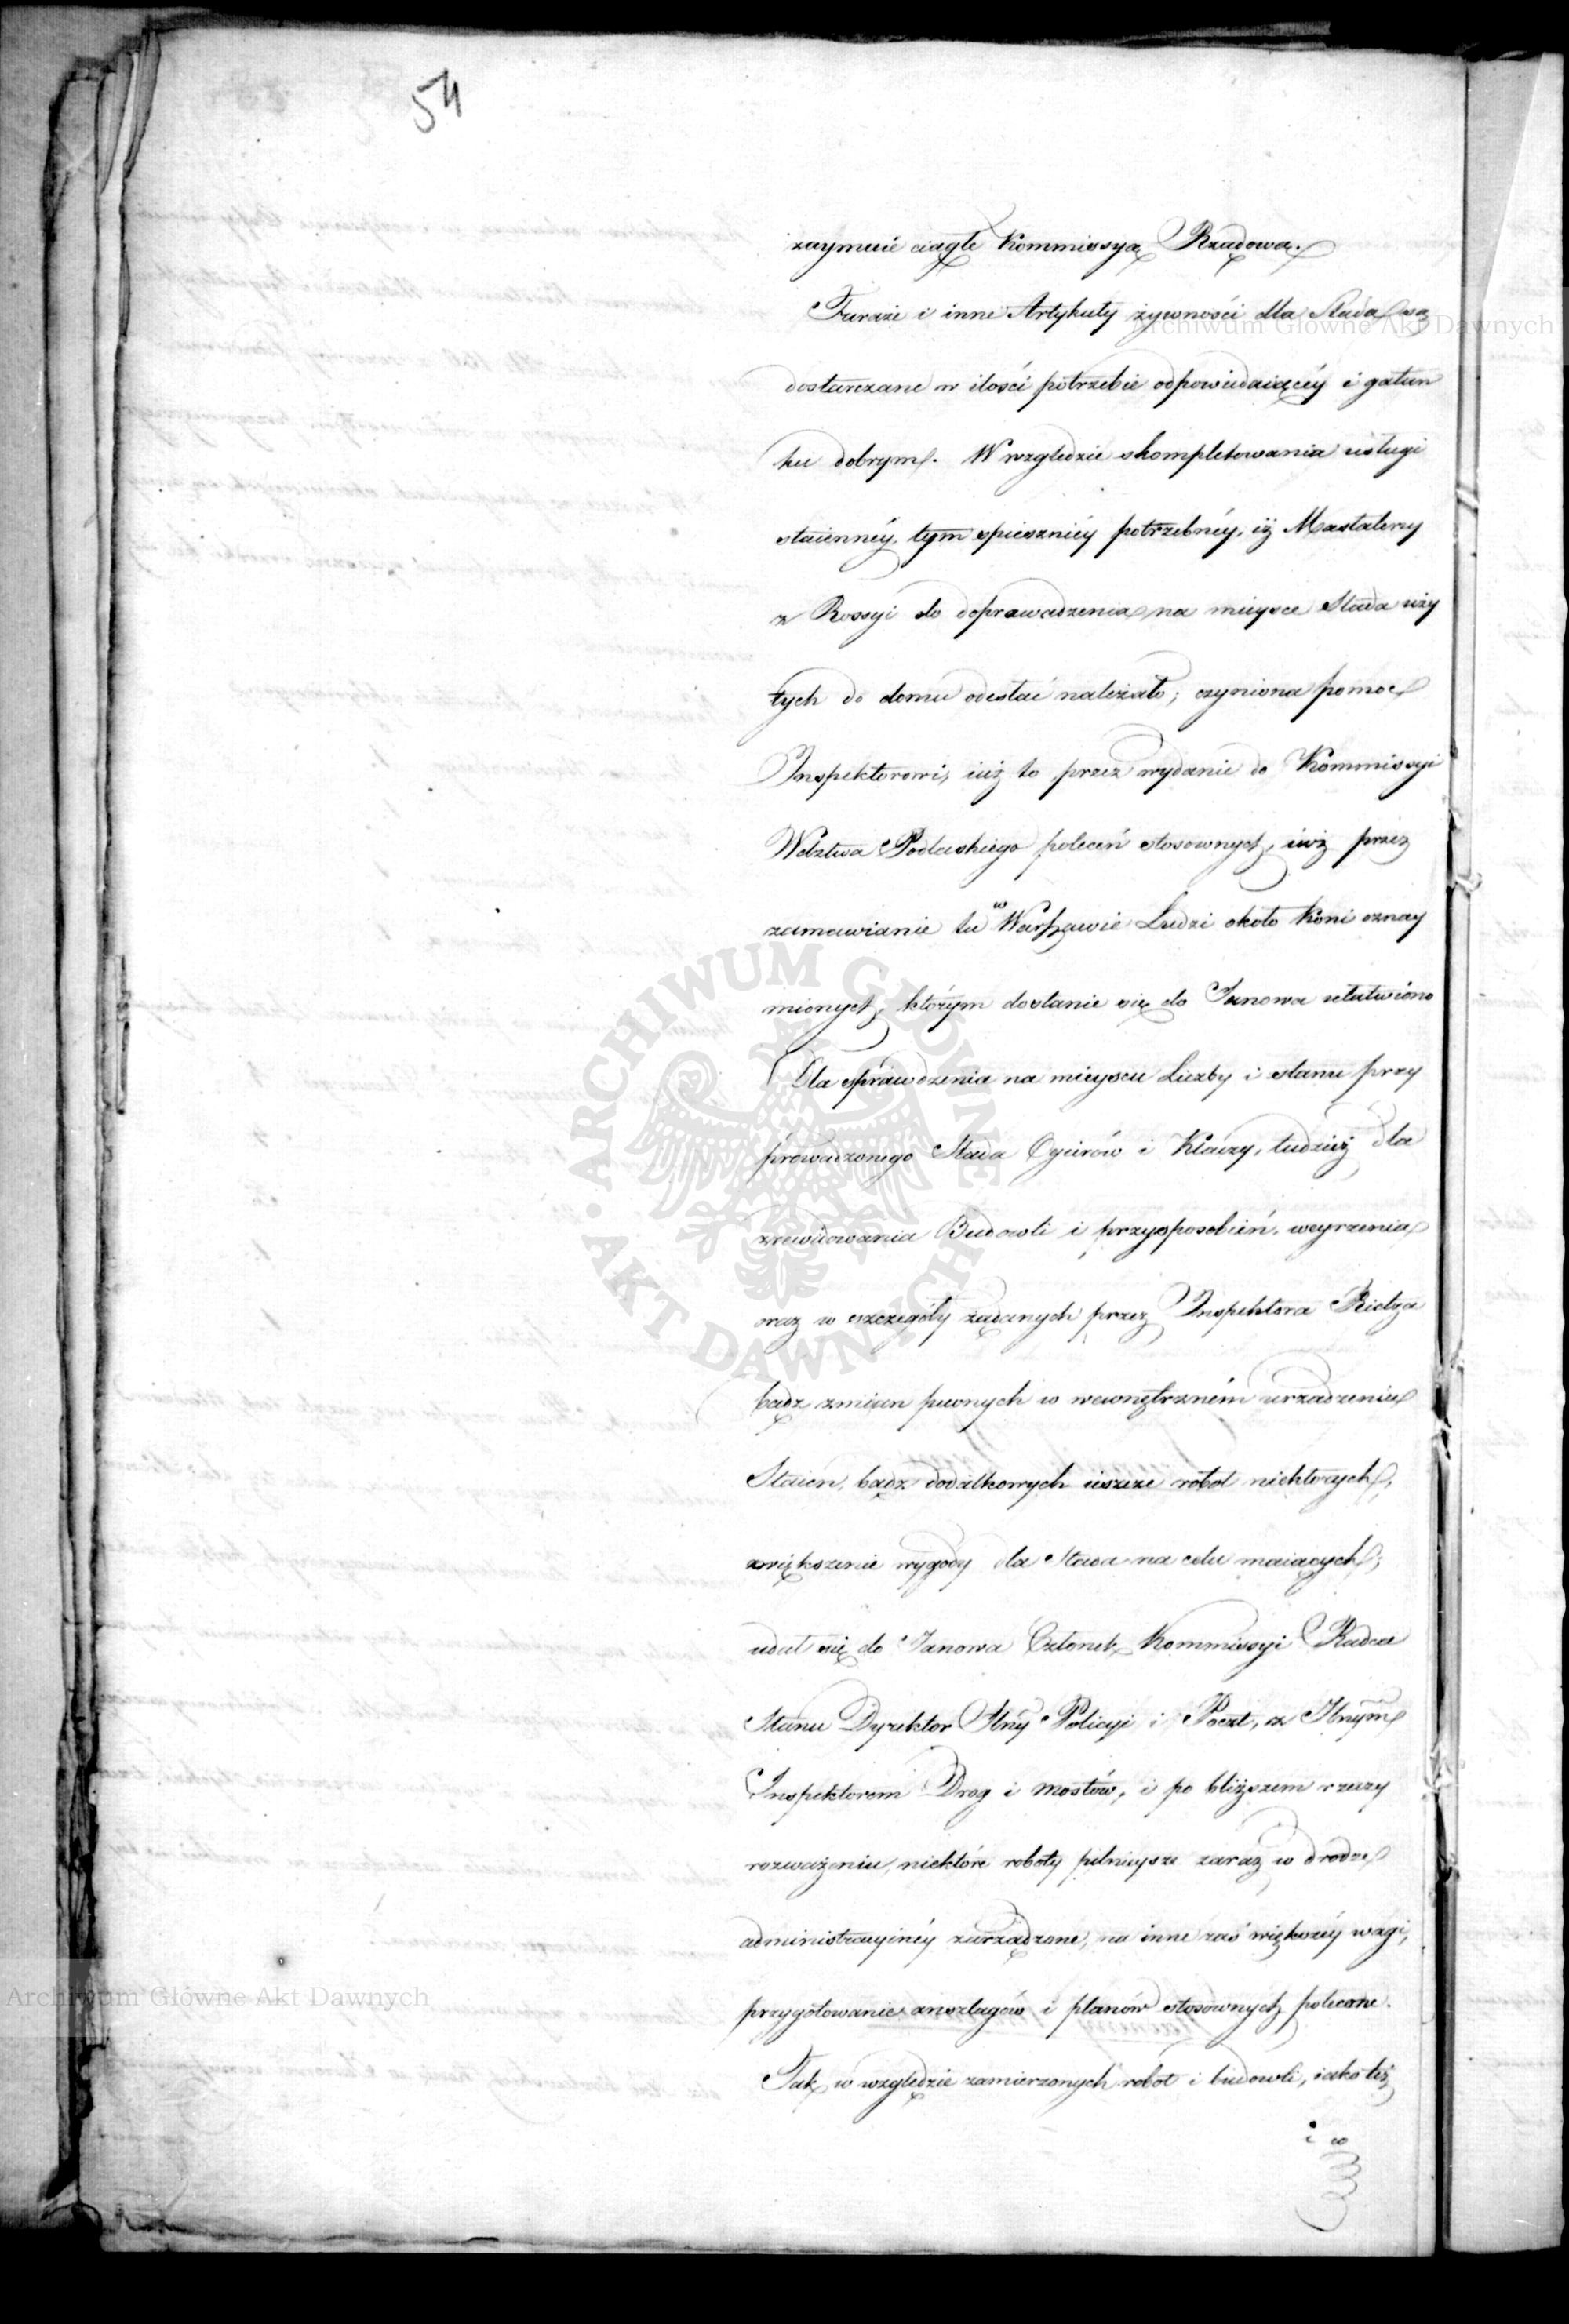 54
zaymuie ciągle Kommissyą Rządową.
Furaże i inne Artykuły żywności dla Stada są
dostarczane w ilości potrzebie odpowiadaiącéy i gatun
ku dobrym. W względzie skompletowania usługi
staiennéy, tym spieszniéy potrzebnéy, iż Mastalerzy
z Rossyi do doprowadzenia na mieysce Stada uży
tych do domu odesłać należało; czyniona pomoc
Inspektorowi, iuż to przez wydanie do Kommissyi
Wdztwa Podlaskiego poleceń stosownych, iuż przez
zamawianie tu w Warszawie Ludzi około Koni oznay
mionych, którym dostanie się do Janowa ułatwiono
Dla sprawdzenia na mieyscu Liczby i stanu przy
prowadzonego Stada Ogierów i Klaczy, tudzież dla
zrewidowania Budowli i przysposobień, weyrzenia
oraz w szczegóły żądanych przez Inspektora Rietza
bądz zmian pewnych w wewnętrzném urządzeniu
Staien, bądz dodatkowych ieszcze robot niektorych,
zwiększenie wygody dla Stada na celu maiących;
udał się do Janowa Członek Kommissyi Radca
Stanu Dyrektor Jlny Policyi i Poczt, z Jlnym
Inspektorem Drog i Mostów, i po bliższem rzeczy
rozważeniu, niektóre roboty pilnieysze zaraz w drodze
administracyinéy zarządzone, na inne zaś większéy wagi,
przygotowanie anszlagów i planów stosownych polecone.
Tak w względzie zamierzonych robot i budowli, iako też
i w
Archiwum Główne Akt Dawnych
Archiwum Główne Akt Dawnych
ARCHIWUM GŁÓWNE AKT DAWNYCH